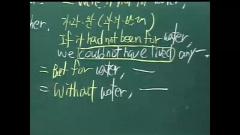 her. 가정법 (과거완료)
If it had not been for water,
we could not have lived any
= But for water, —
= Without water, —